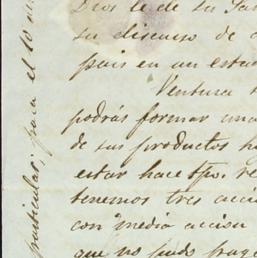 Dios le de su
su discurso de
pais en un esta
Ventura
podrás formar una
de sus productos h
estar hace tpo. re
tenemos tres acci
con media accion
que no pudo
particular; para el 10